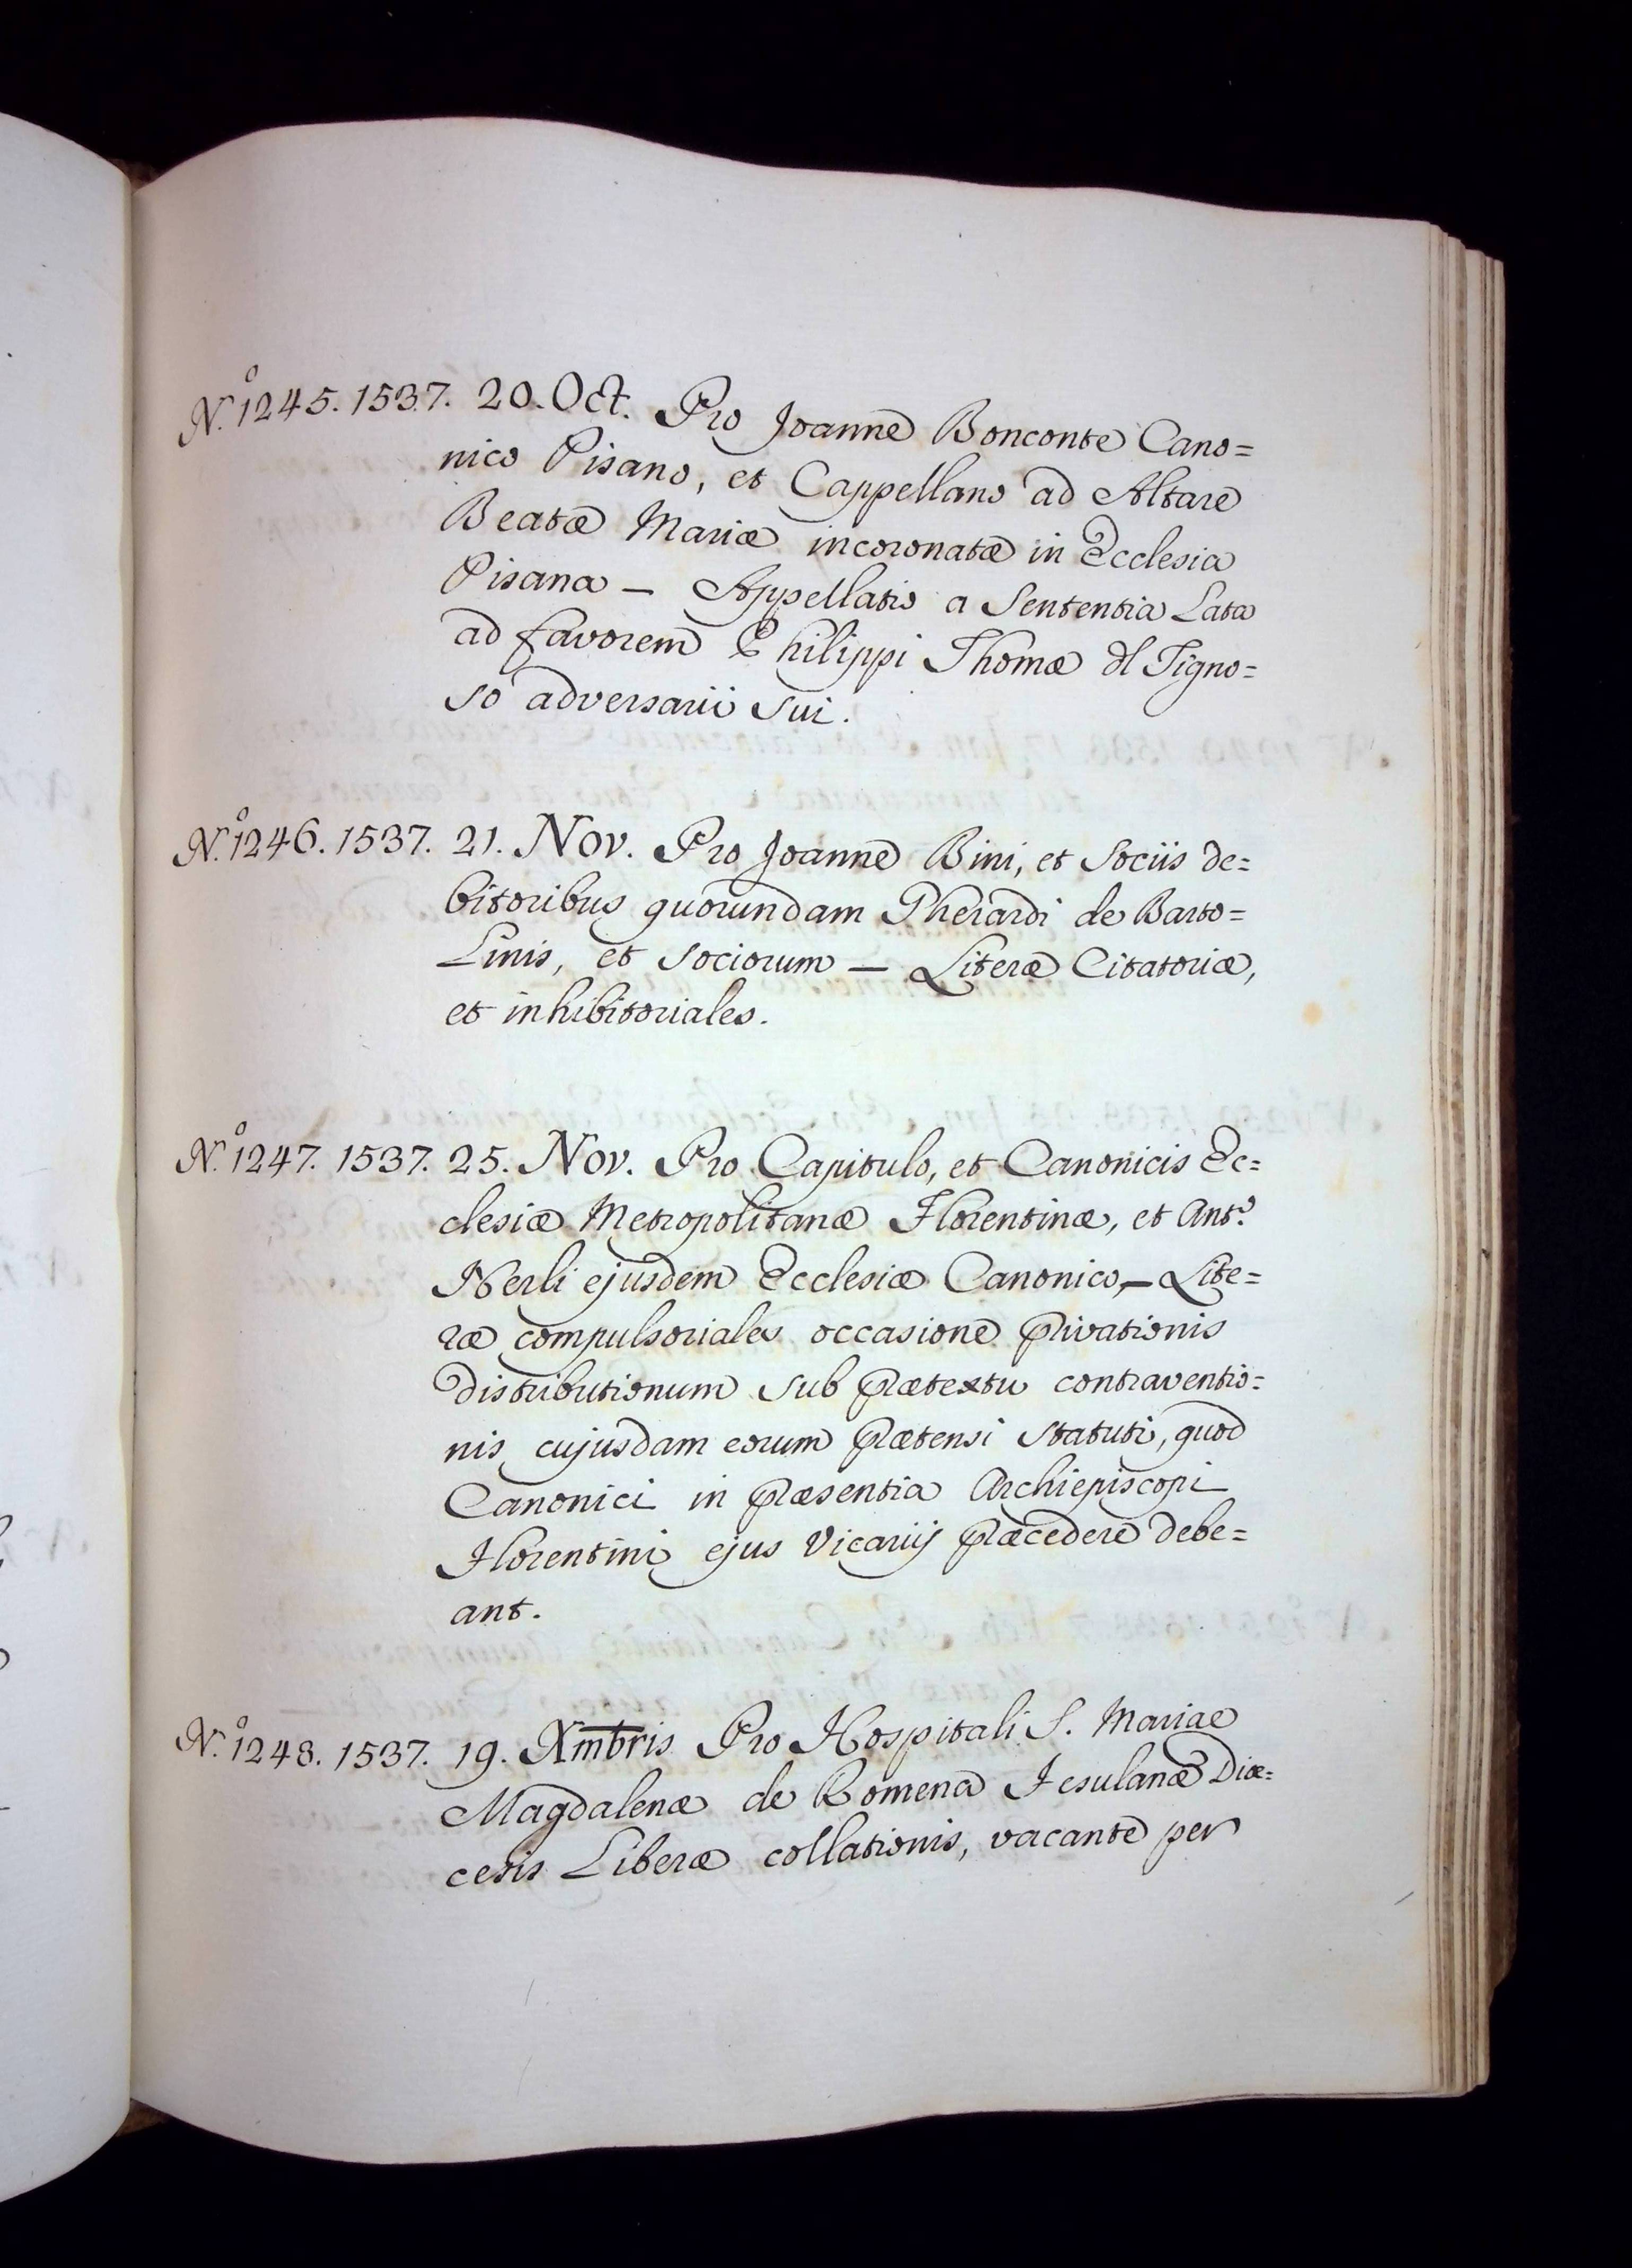 N.º 1245. 1537. 20. Oct. Pro Joanne Bonconte Cano=
nico Pisano, et Cappellano ad Altare
Beatæ Mariæ incoronatæ in Ecclesia
Pisana — Appellatio a Sententia Lata
ad favorem Philippi Thomæ dl Tigno=
so adversarii Sui.
N.º 1246. 1537. 21. Nov. Pro Joanne Bini, et Sociis de=
bitoribus quorundam Gherardi de Barto=
Linis, et Sociorum — Literæ Citatoriæ,
et inhibitoriales.
N.º 1247. 1537. 25. Nov. Pro Capitulo, et Canonicis Ec=
clesiæ Metropolitanæ Florentinæ, et Ant.º
Nerli ejusdem Ecclesiæ Canonico, — Lite=
ræ compulsoriales occasione privationis
distributionum sub prætextu contraventio=
nis cujusdam eorum prætensi Statuti, quod
Canonici in præsentia Archiepiscopi
Florentini ejus Vicarij præcedere debe=
ant.
N.º 1248. 1537. 19. Xmbris Pro Hospitali S. Mariae
Magdalenæ de Romena Fesulanæ Diœ=
cesis Liberæ collationis, vacante per